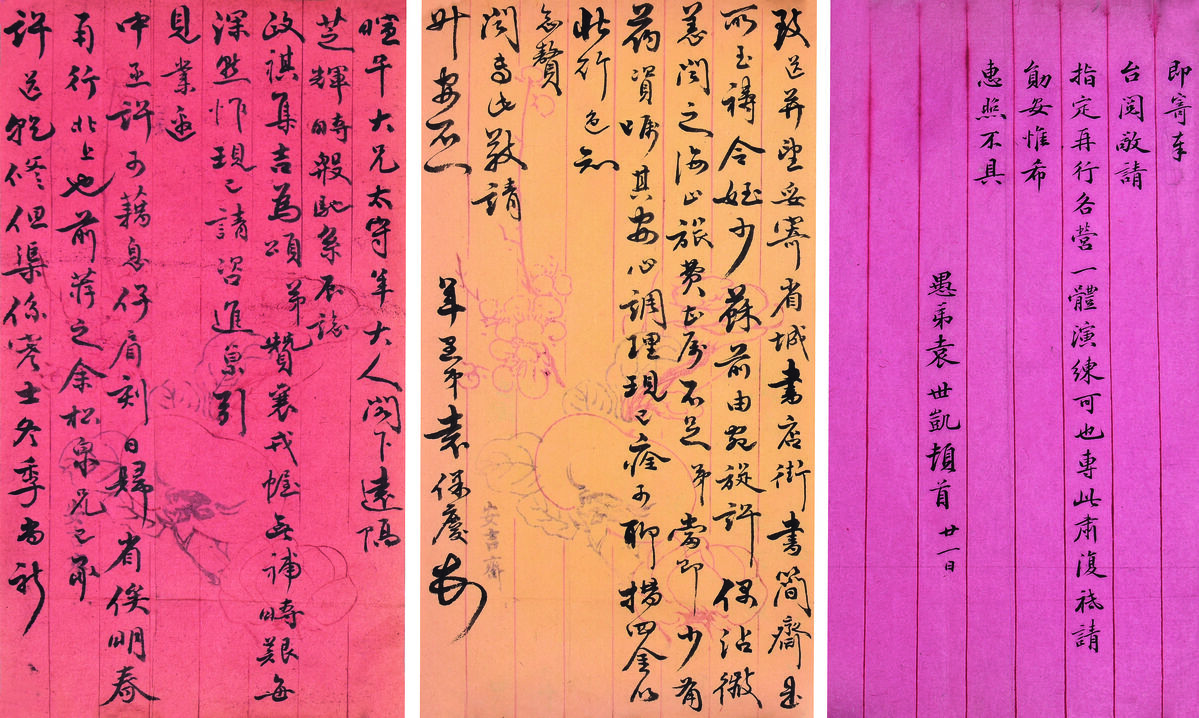 暄午大兄太守年大人閣下遠隔
芝輝時殷馳系辰諗
政祺集吉為頌弟贊襄戎幄無補時艱每
深愁怍現已請咨進京引
見業蒙
中丞許可藉息仔肩刻日歸省俟明春
再行北上也前薦之余松泉兄已承
許送乾修但渠係寒士冬季尚祈
致送並望妥寄省城書店街書簡齋是
所至禱令姪少蘇前由宛旋許偶沾微
恙聞之海山旅費正屬不足弟當即少有
葯資囑其安心調理現已痊可聊措四金以
此行色知
念贅
聞專此敬請
升安不一
年愚弟袁保慶頓
即寄奉
台閱敬請
指定再行各營一體演練可也專此肅復祗請
勛安惟希
惠照不具
愚弟袁世凱頓首 廿一日